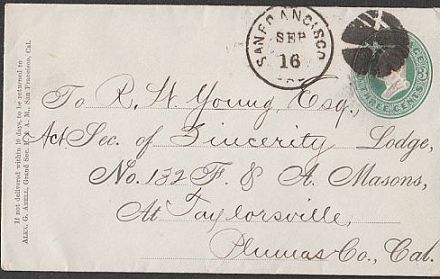 If not delivered within 10 days, to be returned to
ALEX. G. ABELL, Grand Sec. F. & A. M., San Francisco, Cal.
SAN FRANCISCO
SEP
16
THREE CENTS
To R. H. Young, Esq.,
Act Sec. of Sincerity Lodge,
No. 132 F. & A. Masons,
At Taylorsville,
Plumas Co., Cal.